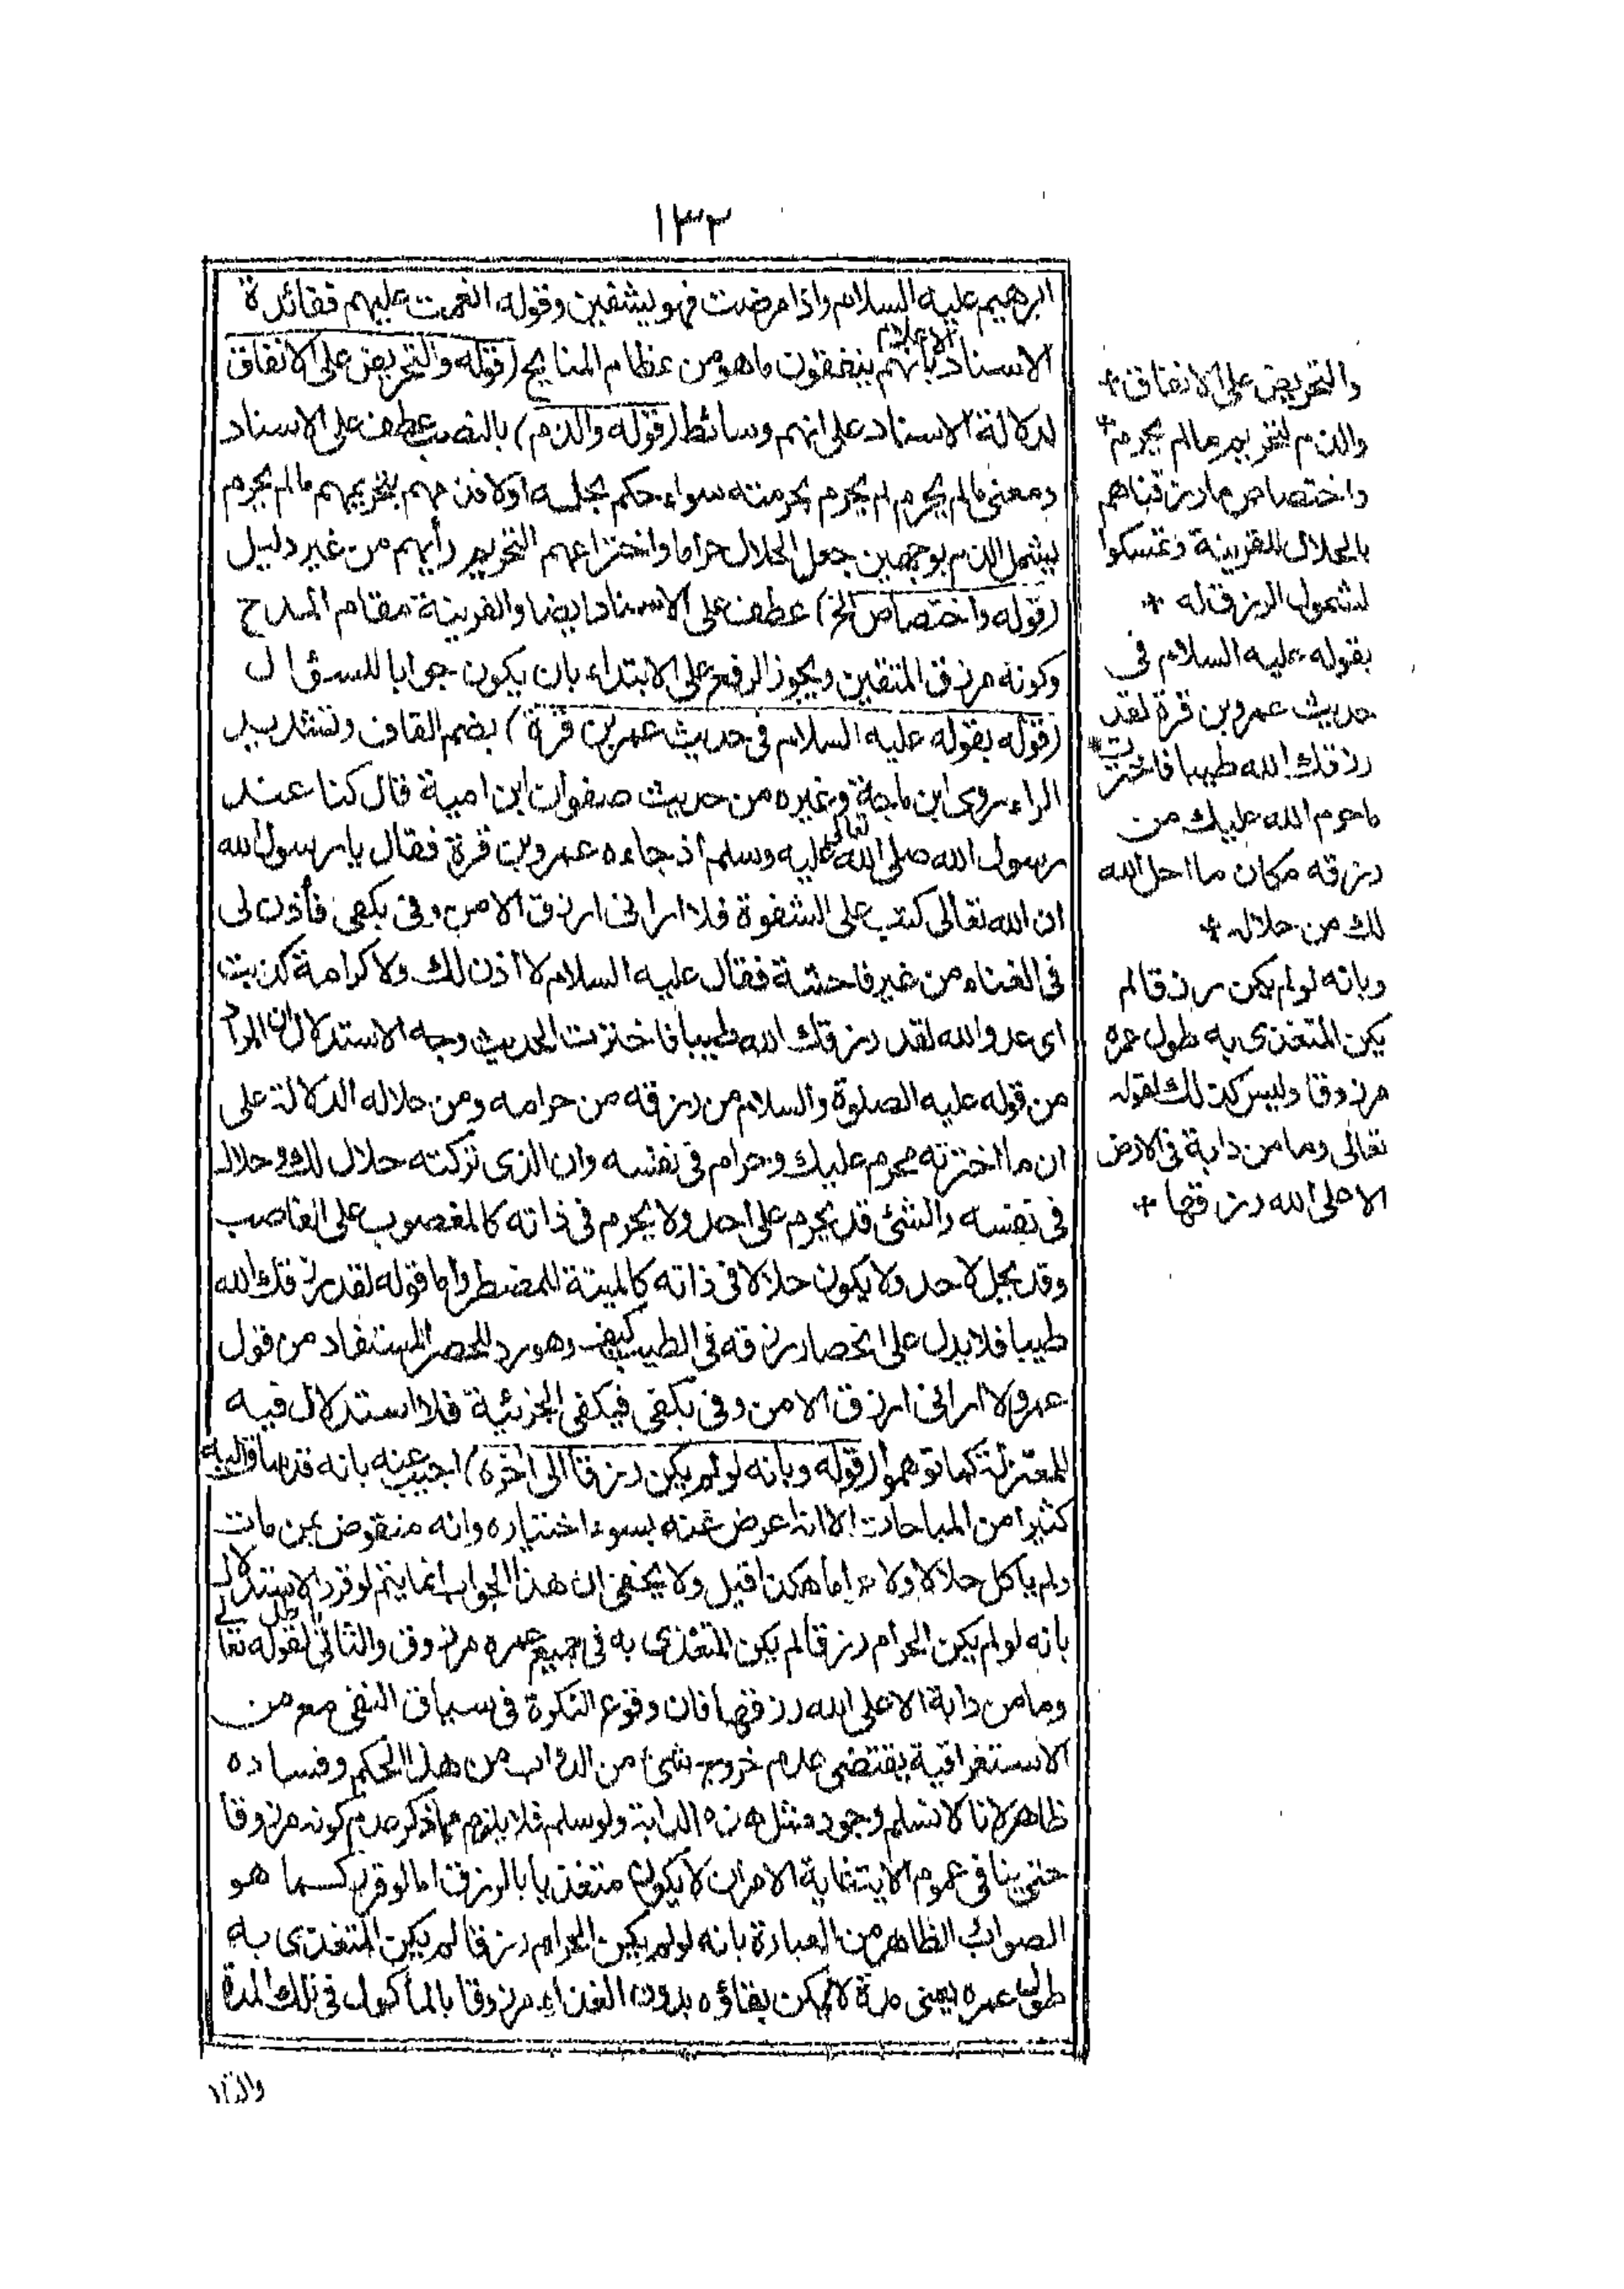 ١٣٢
ابرهيم عليه السلام واذا مرضت فهو يشفين وقوله انعمت عليهم ففائدة
الاسناد الاعلام بانهم ينفقون ما هو من عظام المنايح (قوله والتحريض على الانفاق
لدلالة الاسناد على انهم وسائط (قوله والذم) بالنصب عطف على الاسناد
ومعنى مالم يحرم لم يحرم بحرمته سواء حكم بحله اولا فذمهم بتحريمهم مالم يحرم
يشمل الذم بوجهين جعل الحلال حراما واختراعهم التحريم رأيهم من غير دليل
(قوله واختصاص الخ) عطف على الاسناد ايضا والقرينة مقام المدح
وكونه مرزق المتقين ويجوز الرفع على الابتداء بان يكون جوابا للسؤال
(قوله بقوله عليه السلام فى حديث عمر بن قرة) بضم القاف وتشديد
الراء روى ابن ماجة وغيره من حديث صفوان ابن امية قال كنا عند
رسول الله صلى الله تعالى عليه وسلم اذ جاءه عمرو بن قرة فقال يا رسول الله
ان الله تعالى كتب على الشقوة فلا ارانى ارزق الا من دفى بكفى فأذن لى
فى الغناء من غير فاحشة فقال عليه السلام لا آذن لك ولا كرامة كذبت
اى عدو الله لقد رزقك الله طيبا فاخترت الحديث وجه الاستدلال ان المراد
من قوله عليه الصلوة والسلام من رزقه من حرامه ومن حلاله الدلالة على
ان ما اخترته محرم عليك وحرام فى نفسه وان الذى تركته حلال لك وحلال
فى نفسه والشئ قد يحرم على احد ولا يحرم فى ذاته كالمغصوب على الغاصب
وقد يحل لاحد ولا يكون حلالا فى ذاته كالميتة للمضطر واما قوله لقد رزقك الله
طيبا فلا يدل على انحصار رزقه فى الطيب كيف وهو رد للحصر المستفاد من قول
عمرو لا ارانى ارزق الا من دفى بكفى فيكفى الجزئية فلا استدلال فيه
للمعتزلة كما توهموا (قوله وبانه لو لم يكن رزقا الى اخره) اجيب عنه بانه قد ساق اليه
كثيرا من المباحات الا انه اعرض عنه بسوء اختياره وانه منقوض بمن مات
ولم ياكل حلالا ولا حراما هكذا قيل ولا يخفى ان هذا الجواب انما يتم لو قرر الاستدلال
بانه لو لم يكن الحرام رزقا لم يكن المتغذى به فى جميع عمره مرزوق والثانى باطل لقوله تعالى
وما من دابة الا على الله رزقها فان وقوع النكرة فى سياق النفى مع من
الاستغراقية يقتضى عدم خروج شئ من الدواب من هذا الحكم وفساده
ظاهر لانا لا نسلم وجود مثل هذه الدابة ولو سلم فلا يلزم مما ذكر عدم كونه مرزوقا
حتى ينافى عموم الاية غاية الامر ان لا يكون متغذيا بالرزق اما لو قرر كما هو
الصواب الظاهر من العبارة بانه لو لم يكن الحرام رزقا لم يكن المتغذى به
طول عمره يعنى مدة لا يمكن بقاؤه بدون الغذاء مرزوقا بالمأكول فى تلك المدة
والتحريض على الانفاق *
والذم لتحريم مالم يحرم *
واختصاص ما رزقناهم
بالحلال للقرينة وتمسكوا
لشمول الرزق له *
بقوله عليه السلام فى
حديث عمرو بن قرة لقد
رزقك الله طيبا فاخترت *
ما حرم الله عليك من
رزقه مكان ما احل الله
لك من حلاله *
وبانه لو لم يكن رزقا لم
يكن المتغذى به طول عمره
مرزوقا وليس كذلك لقوله
تعالى وما من دابة فى الارض
الا على الله رزقها *